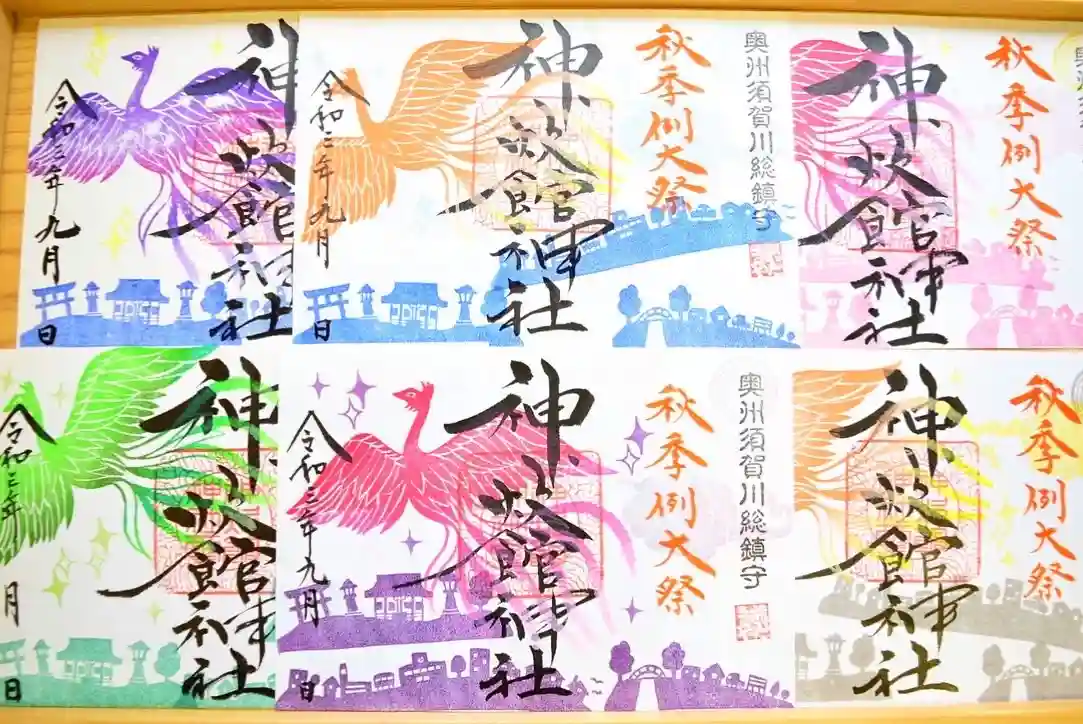 奥州須賀川総鎮守
秋季例大祭
神炊館神社
令和三年九月
日
神炊館神社
令和三年九月
日
奥州須賀
秋季例大祭
神炊館神社
奥州須賀川総鎮守
秋季例大祭
神炊館神社
令和三年九月
日
神炊館神社
令和三年
月
日
秋季例大祭
神炊館神社